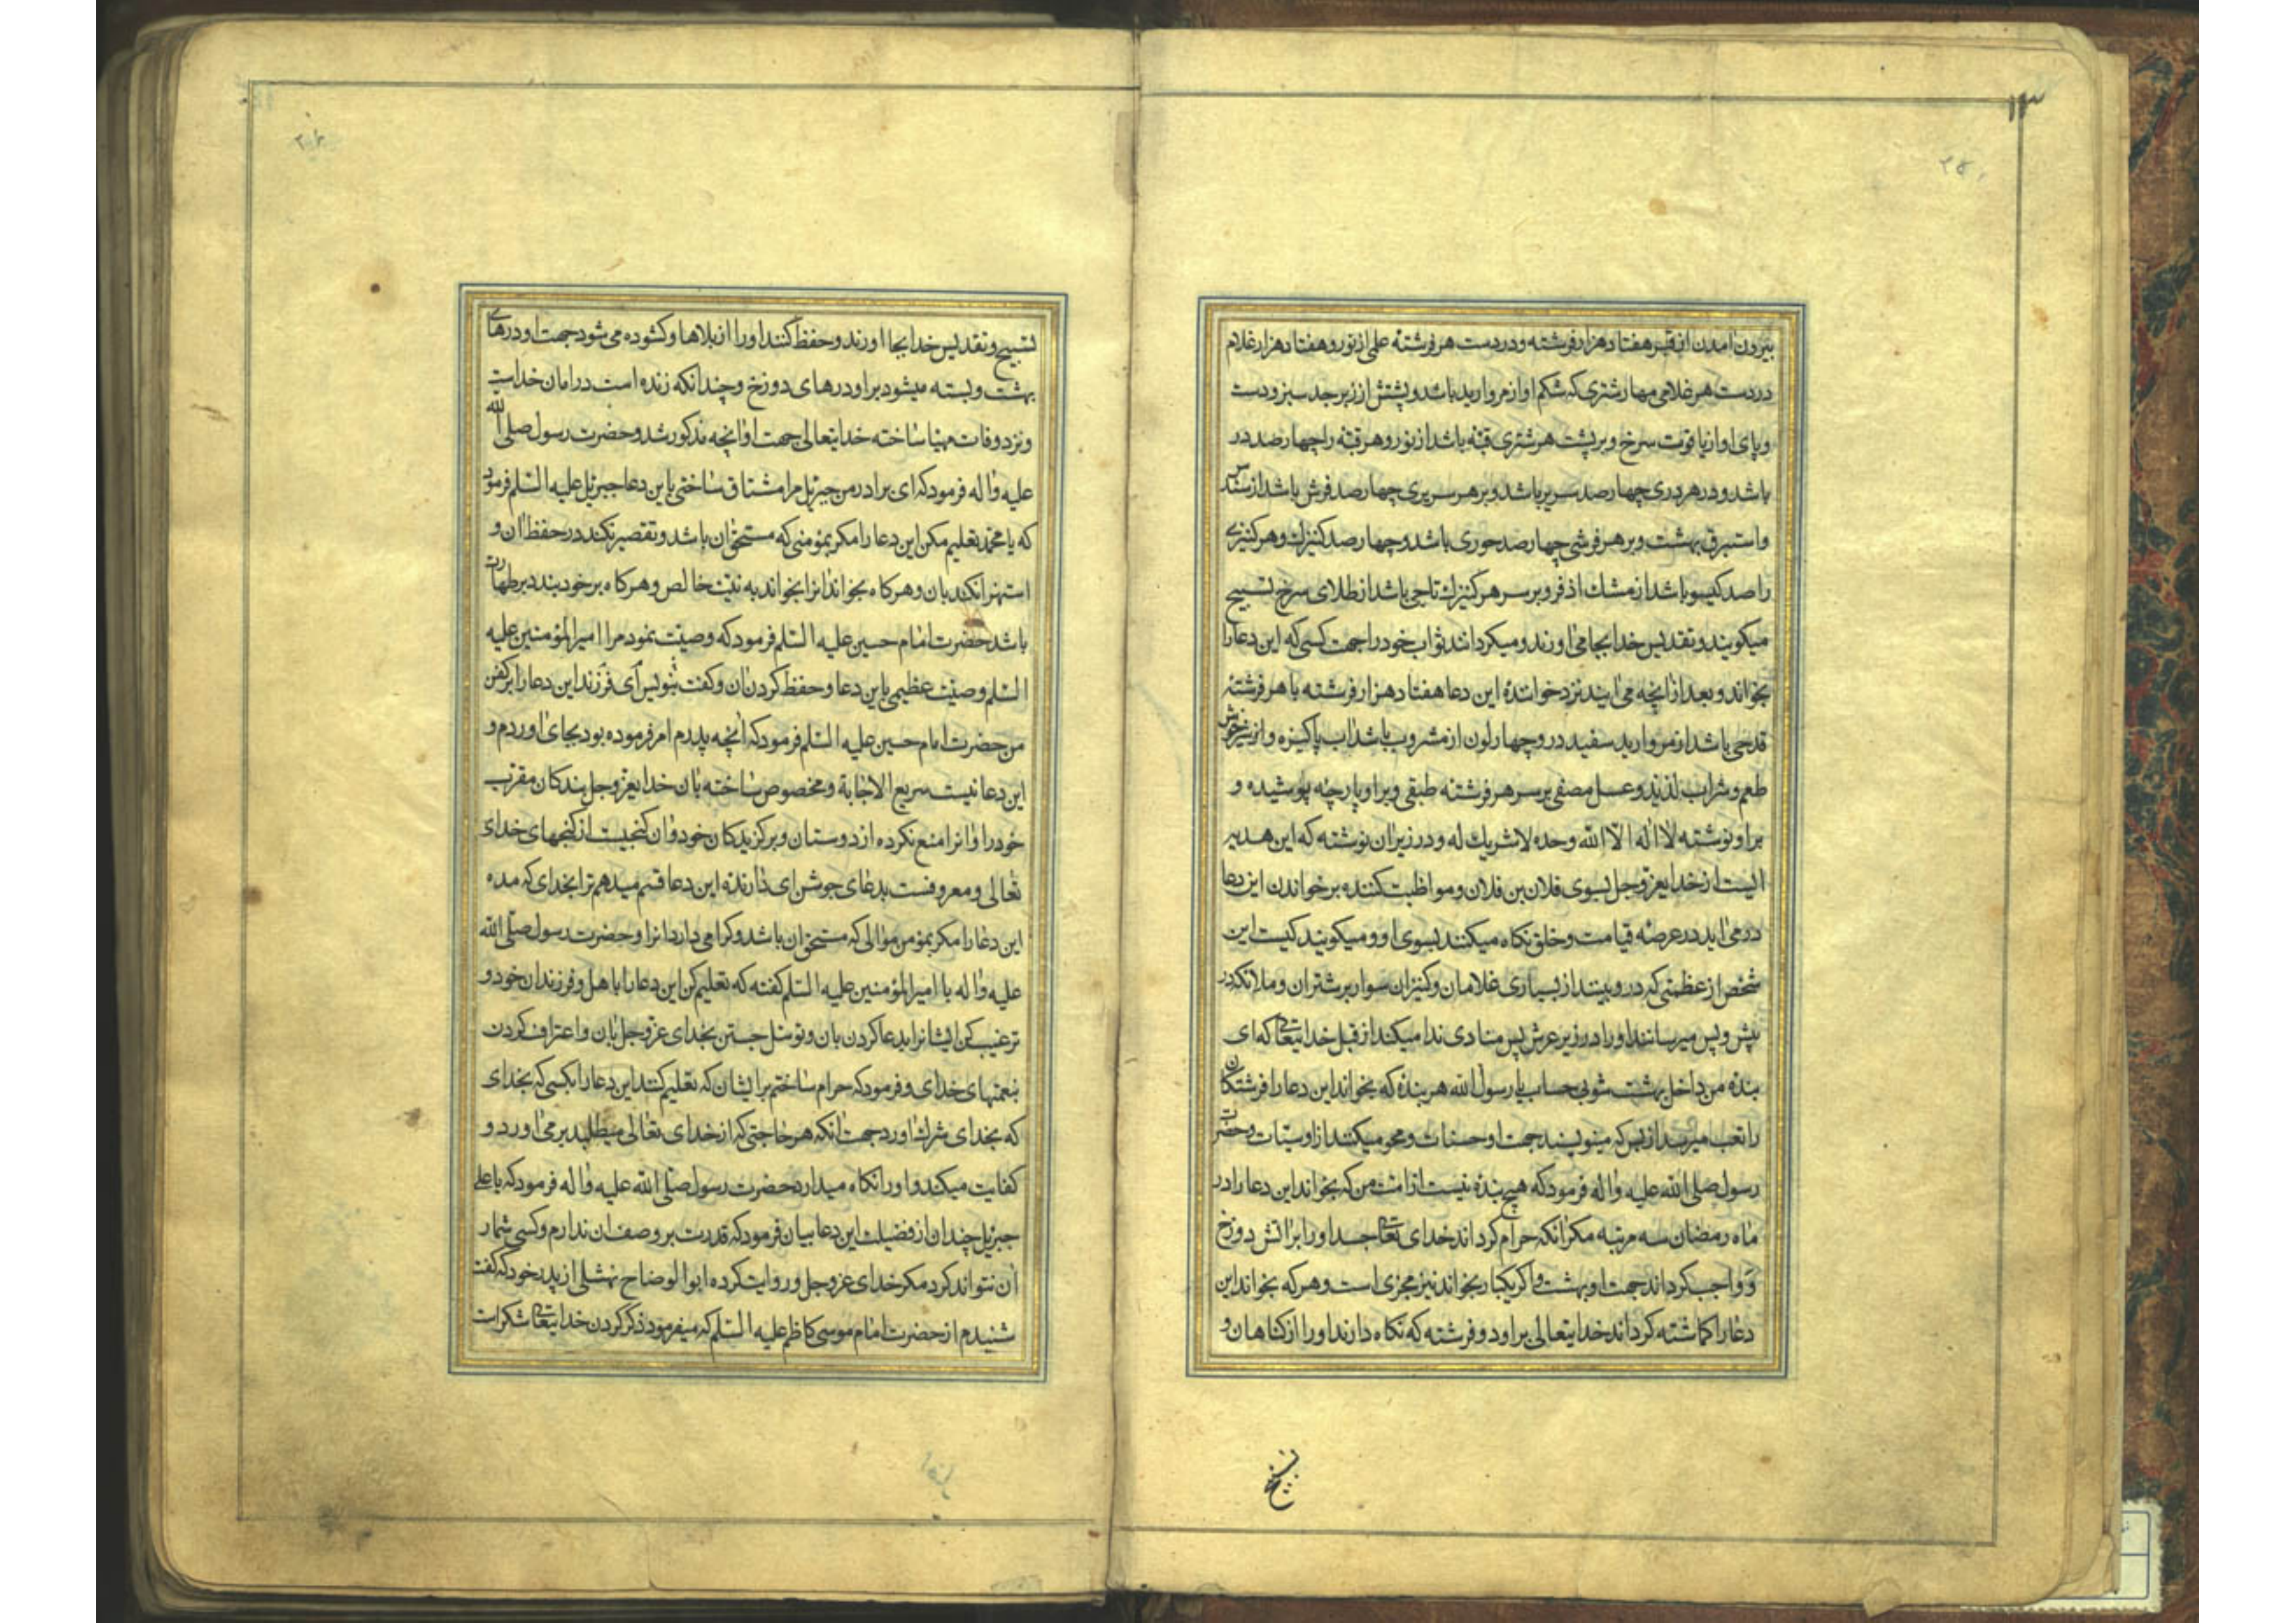 ۱۳
بیرون امدن از قبر هفتاد هزار فرشته و در دست هر فرشته علمی از نور و هفتاد هزار غلام
در دست هر غلامی مهار شتری که شکم او از مروارید باشد و پشتش از زبرجد سبز و دست
و پای او از یاقوت سرخ و بر پشت هر شتری قبّه باشد از نور و هر قبّه را چهارصد در
باشد و در هر دری چهارصد سریر باشد و بر هر سریری چهارصد فرش باشد از سندس
و استبرق بهشت و بر هر فرشی چهارصد حوری باشد و چهارصد کنیزک و هر کنیزی
را صد کیسو باشد از مشک اذفر و بر سر هر کنیزک تاجی باشد از طلای سرخ تسبیح
میکویند و تقدیس خدا بجا می اورند و میکردانند ثواب خود را جهت کسی که این دعا را
بخواند و بعد از انچه می ایند نزد خوانندهٔ این دعا هفتاد هزار فرشته با هر فرشتهٔ
قدحی باشد از مروارید سفید در و چهار لون از مشروب باشد اب پاکیزه و از شیر خوش
طعم و شراب لذیذ و عسل مصفی بر سر هر فرشته طبقی و بر او پارچهٔ پوشیده و
بر او نوشته لا اله الّا الله وحده لا شریك له و در زیر ان نوشته که این هدیه
ایست از خدای عزّوجل بسوی فلان بن فلان و مواظبت کننده بر خواندن این دعا
در می اید در عرصهٔ قیامت و خلق نکاه میکنند بسوی او و میکویند کیست این
شخص از عظمتی که در و بینند از بسیاری غلامان و کنیزان سوار بر شتران و ملائکه در
پیش و پس میرسانند او را در زیر عرش پس منادی ندا میکند از قبل خدایتعا که ای
بندهٔ من داخل بهشت شو بی حساب یا رسول الله هر بندهٔ که بخواند این دعا را فرشتکان
را تعب میرسد از بس که مینویسند جهت او حسنات و محو میکنند از او سیّئات و حضرت
رسول صلی الله علیه واٰله فرمود که هیچ بندهٔ نیست از امّت من که بخواند این دعا را در
ماه رمضان سه مرتبه مکر انکه حرام کرداند خدای تعا جسد او را بر اتش دوزخ
و واجب کرداند جهت او بهشت و اکر یکبار بخواند نیز مجزی است و هر که بخواند این
دعا را کماشته کرداند خدایتعالی بر او دو فرشته که نکاه دارند او را از کناهان و
تسبیح
تسبیح و تقدیس خدا بجا اورند و حفظ کنند او را از بلاها و کشوده می شود جهت او درهای
بهشت و بسته میشود بر او درهای دوزخ و چندانکه زنده است در امان خداست
و نزد وفات مهیّا ساخته خدایتعالی جهت او انچه مذکور شد و حضرت رسول صلی الله
علیه واٰله فرمود که ای برادر من جبرئیل مرا مشتاق ساختی باین دعا جبرئیل علیه السّلم فرمود
که یا محمّد تعلیم مکن این دعا را مکر بمؤمنی که مستحقّ ان باشد و تقصیر نکند در حفظ ان و
استهزا نکند بان و هرکاه بخواند انرا بخواند به نیّت خالص و هرکاه بر خود بندد بر طهارت
باشد حضرت امام حسین علیه السّلم فرمود که وصیّت نمود مرا امیرالمؤمنین علیه
السّلم وصیّت عظیمی باین دعا و حفظ کردن ان و کفت بنویس ای فرزند این دعا را بر کفن
من حضرت امام حسین علیه السّلم فرمود که انچه پدرم امر فرموده بود بجای اوردم و
این دعائیست سریع الاجابة و مخصوص ساخته بان خدایعزّوجل بندکان مقرّب
خود را و انرا منع نکرده از دوستان و برکزیدکان خود و ان کنجیست از کنجهای خدای
تعالی و معروفست بدعای جوشن ای دارندهٔ این دعا قسم میدهم ترا بخدای که مده
این دعا را مکر بمؤمن موالی که مستحق ان باشد و کرامی دارد انرا و حضرت رسول صلّی الله
علیه واٰله با امیرالمؤمنین علیه السّلم کفته که تعلیم کن این دعا را باهل و فرزندان خود و
ترغیب کن ایشانرا بدعا کردن بان و توسّل جستن بخدای عزّوجل بان و اعتراف کردن
بنعمتهای خدای و فرمود که حرام ساختم بر ایشان که تعلیم کنند این دعا را بکسی که بخدای
که بخدای شرك اورد جهت انکه هر حاجتی که از خدای تعالی میطلبد بر می اورد و
کفایت میکند و او را نکاه میدارد حضرت رسول صلّی الله علیه واٰله فرمود که یا علی
جبرئیل چندان از فضیلت این دعا بیان فرمود که قدرت بر وصف ان ندارم و کسی شمار
ان نتواند کرد مکر خدای عزّوجل و روایت کرده ابوالوضاح نهشلی از پدر خود که کفت
شنیدم از حضرت امام موسی کاظم علیه السّلم که میفرمود ذکر کردن خدایتعا شکراست